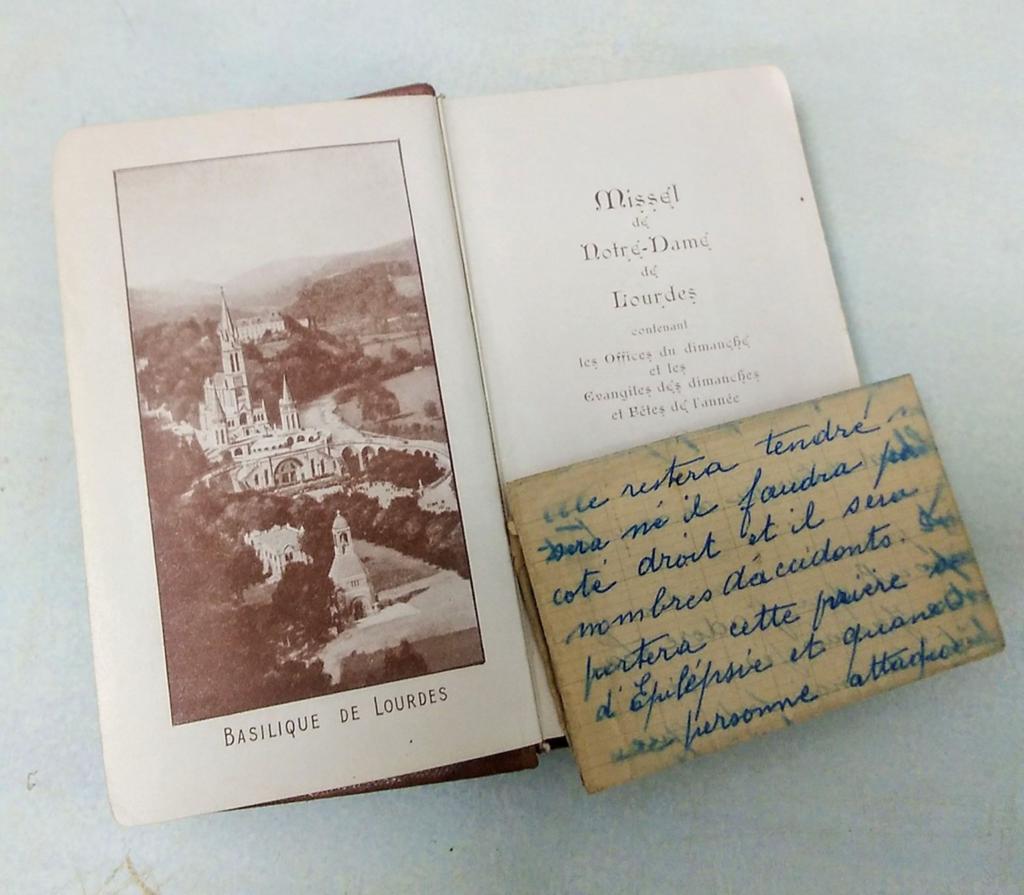 BASILIQUE DE LOURDES
Missel
de
Notre-Dame
de
Lourdes
contenant
les Offices du dimanche
et les
Evangiles des dimanches
et Fêtes de l'année
restera tendre
sera né il faudra
coté droit et il sera
nombres d'accidents.
portera cette prière
d'Epilépsie et quand
personne attaque